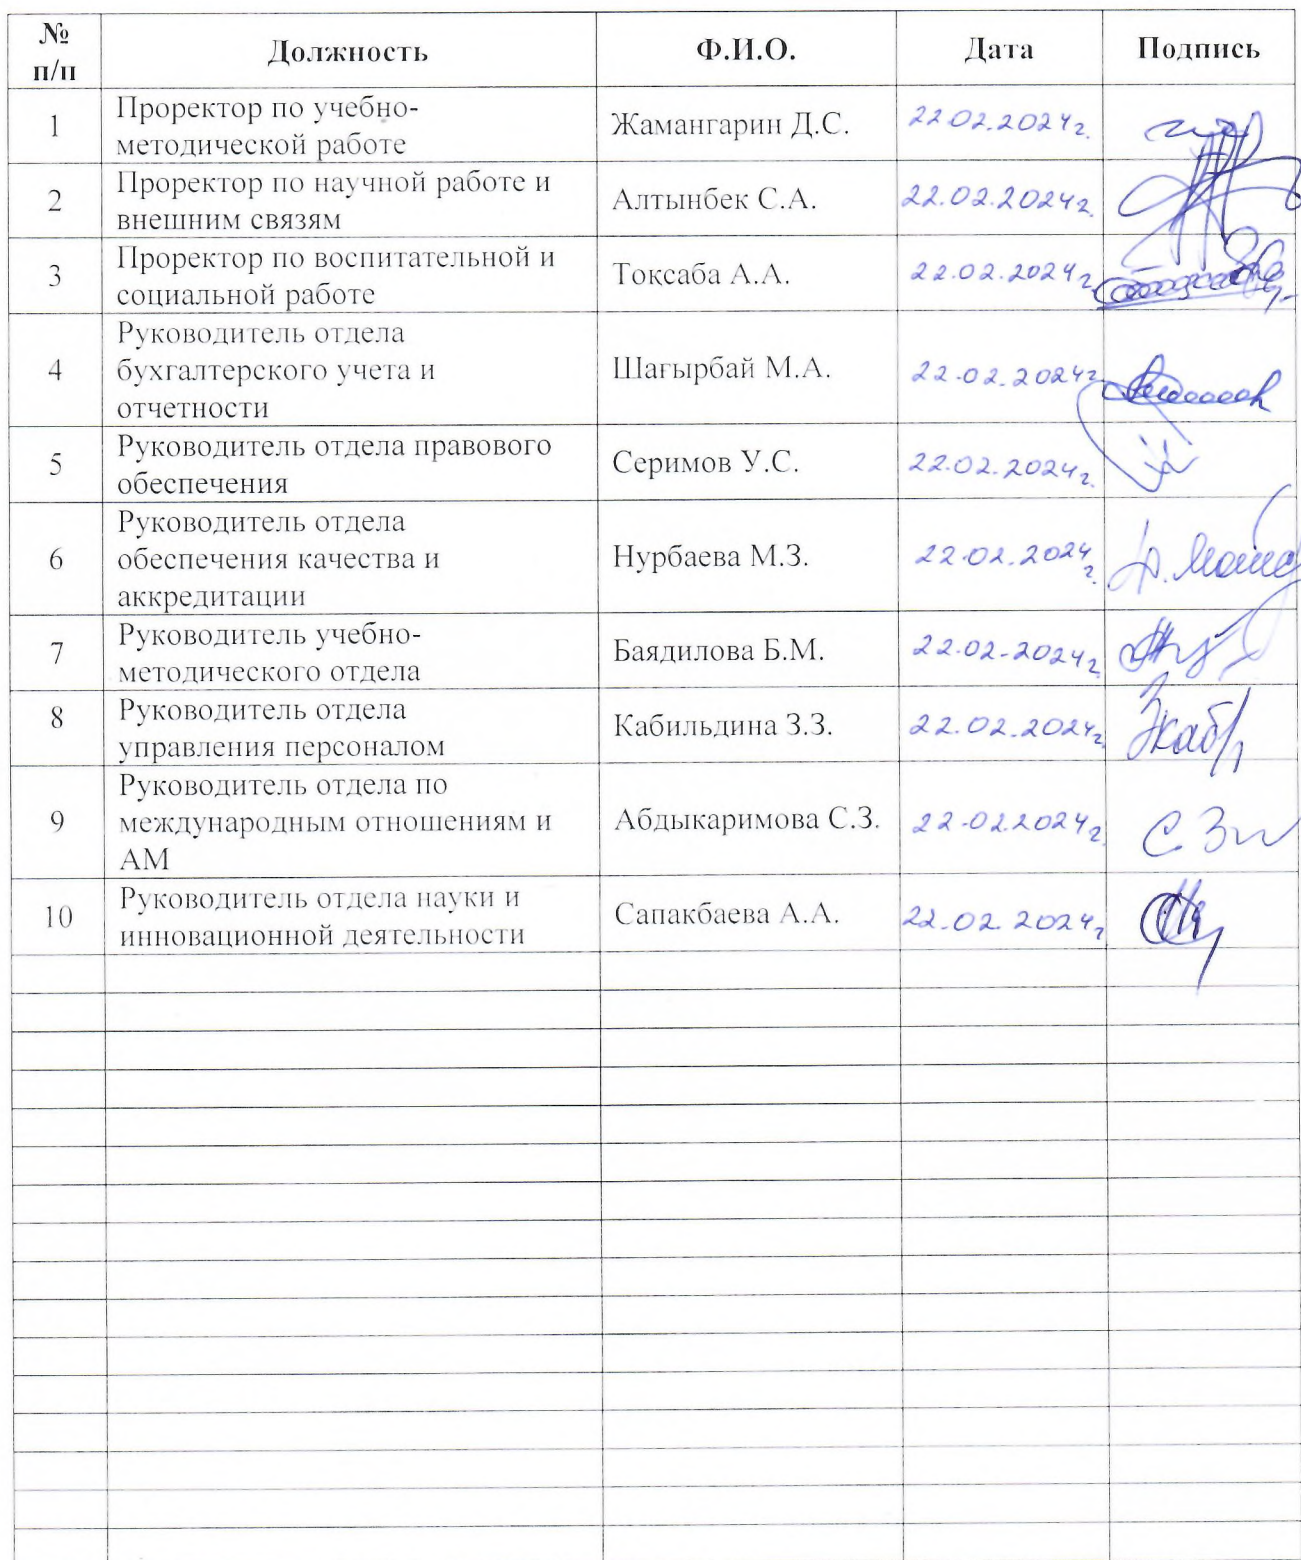 № п/п Должность Ф.И.О. Дата Подпись
1 Проректор по учебно-
методической работе Жамангарин Д.С. 22.02.2024г.
2 Проректор по научной работе и
внешним связям Алтынбек С.А. 22.02.2024г.
3 Проректор по воспитательной и
социальной работе Тоқсаба А.А. 22.02.2024г.
4 Руководитель отдела
бухгалтерского учета и
отчетности Шағырбай М.А. 22.02.2024г
5 Руководитель отдела правового
обеспечения Серимов У.С. 22.02.2024г.
6 Руководитель отдела
обеспечения качества и
аккредитации Нурбаева М.З. 22.02.2024г.
7 Руководитель учебно-
методического отдела Баядилова Б.М. 22.02.2024г
8 Руководитель отдела
управления персоналом Кабильдина З.З. 22.02.2024г
9 Руководитель отдела по
международным отношениям и
АМ Абдыкаримова С.З. 22.02.2024г
10 Руководитель отдела науки и
инновационной деятельности Сапакбаева А.А. 22.02.2024г